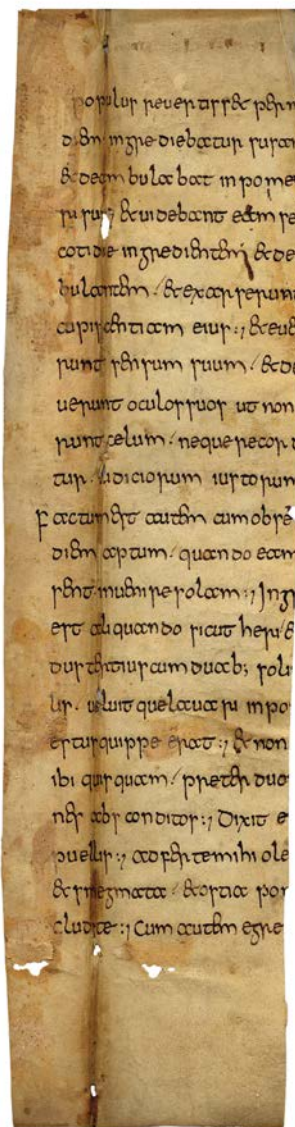 populus reuertisset per m
diem ingrediebatur susan
& deambulabat in pome
ri sui ; & uidebant eam se
cotidie ingredientem & de
bulantem / & exarserunt
cupiscentiam eius :; & eue
runt sensum suum / & de
uerunt oculos suos ut non
runt celum / neque recor
tur iudiciorum iustorum
Factum est autem cum obse
diem aptum / quando eam
sent inuenire solam :; Ingr
est aliquando sicut heri &
dustertius cum duab; soli
lis / uoluit que lauari in po
estus quippe erat :; & non
ibi quisquam / preter duo
nes absconditos :; Dixit e
puellis :; adferte mihi ole
& smegmata / & ostia pom
cludite :; Cum autem egre